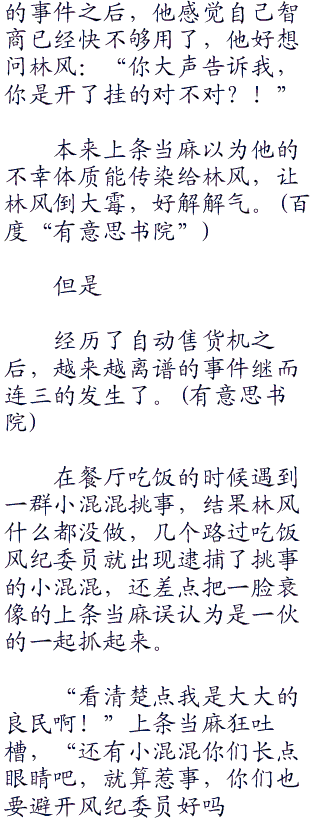 的事件之后，他感觉自己智
商已经快不够用了，他好想
问林风：“你大声告诉我，
你是开了挂的对不对？！”
本来上条当麻以为他的
不幸体质能传染给林风，让
林风倒大霉，好解解气。(百
度“有意思书院”)
但是
经历了自动售货机之
后，越来越离谱的事件继而
连三的发生了。(有意思书
院)
在餐厅吃饭的时候遇到
一群小混混挑事，结果林风
什么都没做，几个路过吃饭
风纪委员就出现逮捕了挑事
的小混混，还差点把一脸衰
像的上条当麻误认为是一伙
的一起抓起来。
“看清楚点我是大大的
良民啊！”上条当麻狂吐
槽，“还有小混混你们长点
眼睛吧，就算惹事，你们也
要避开风纪委员好吗